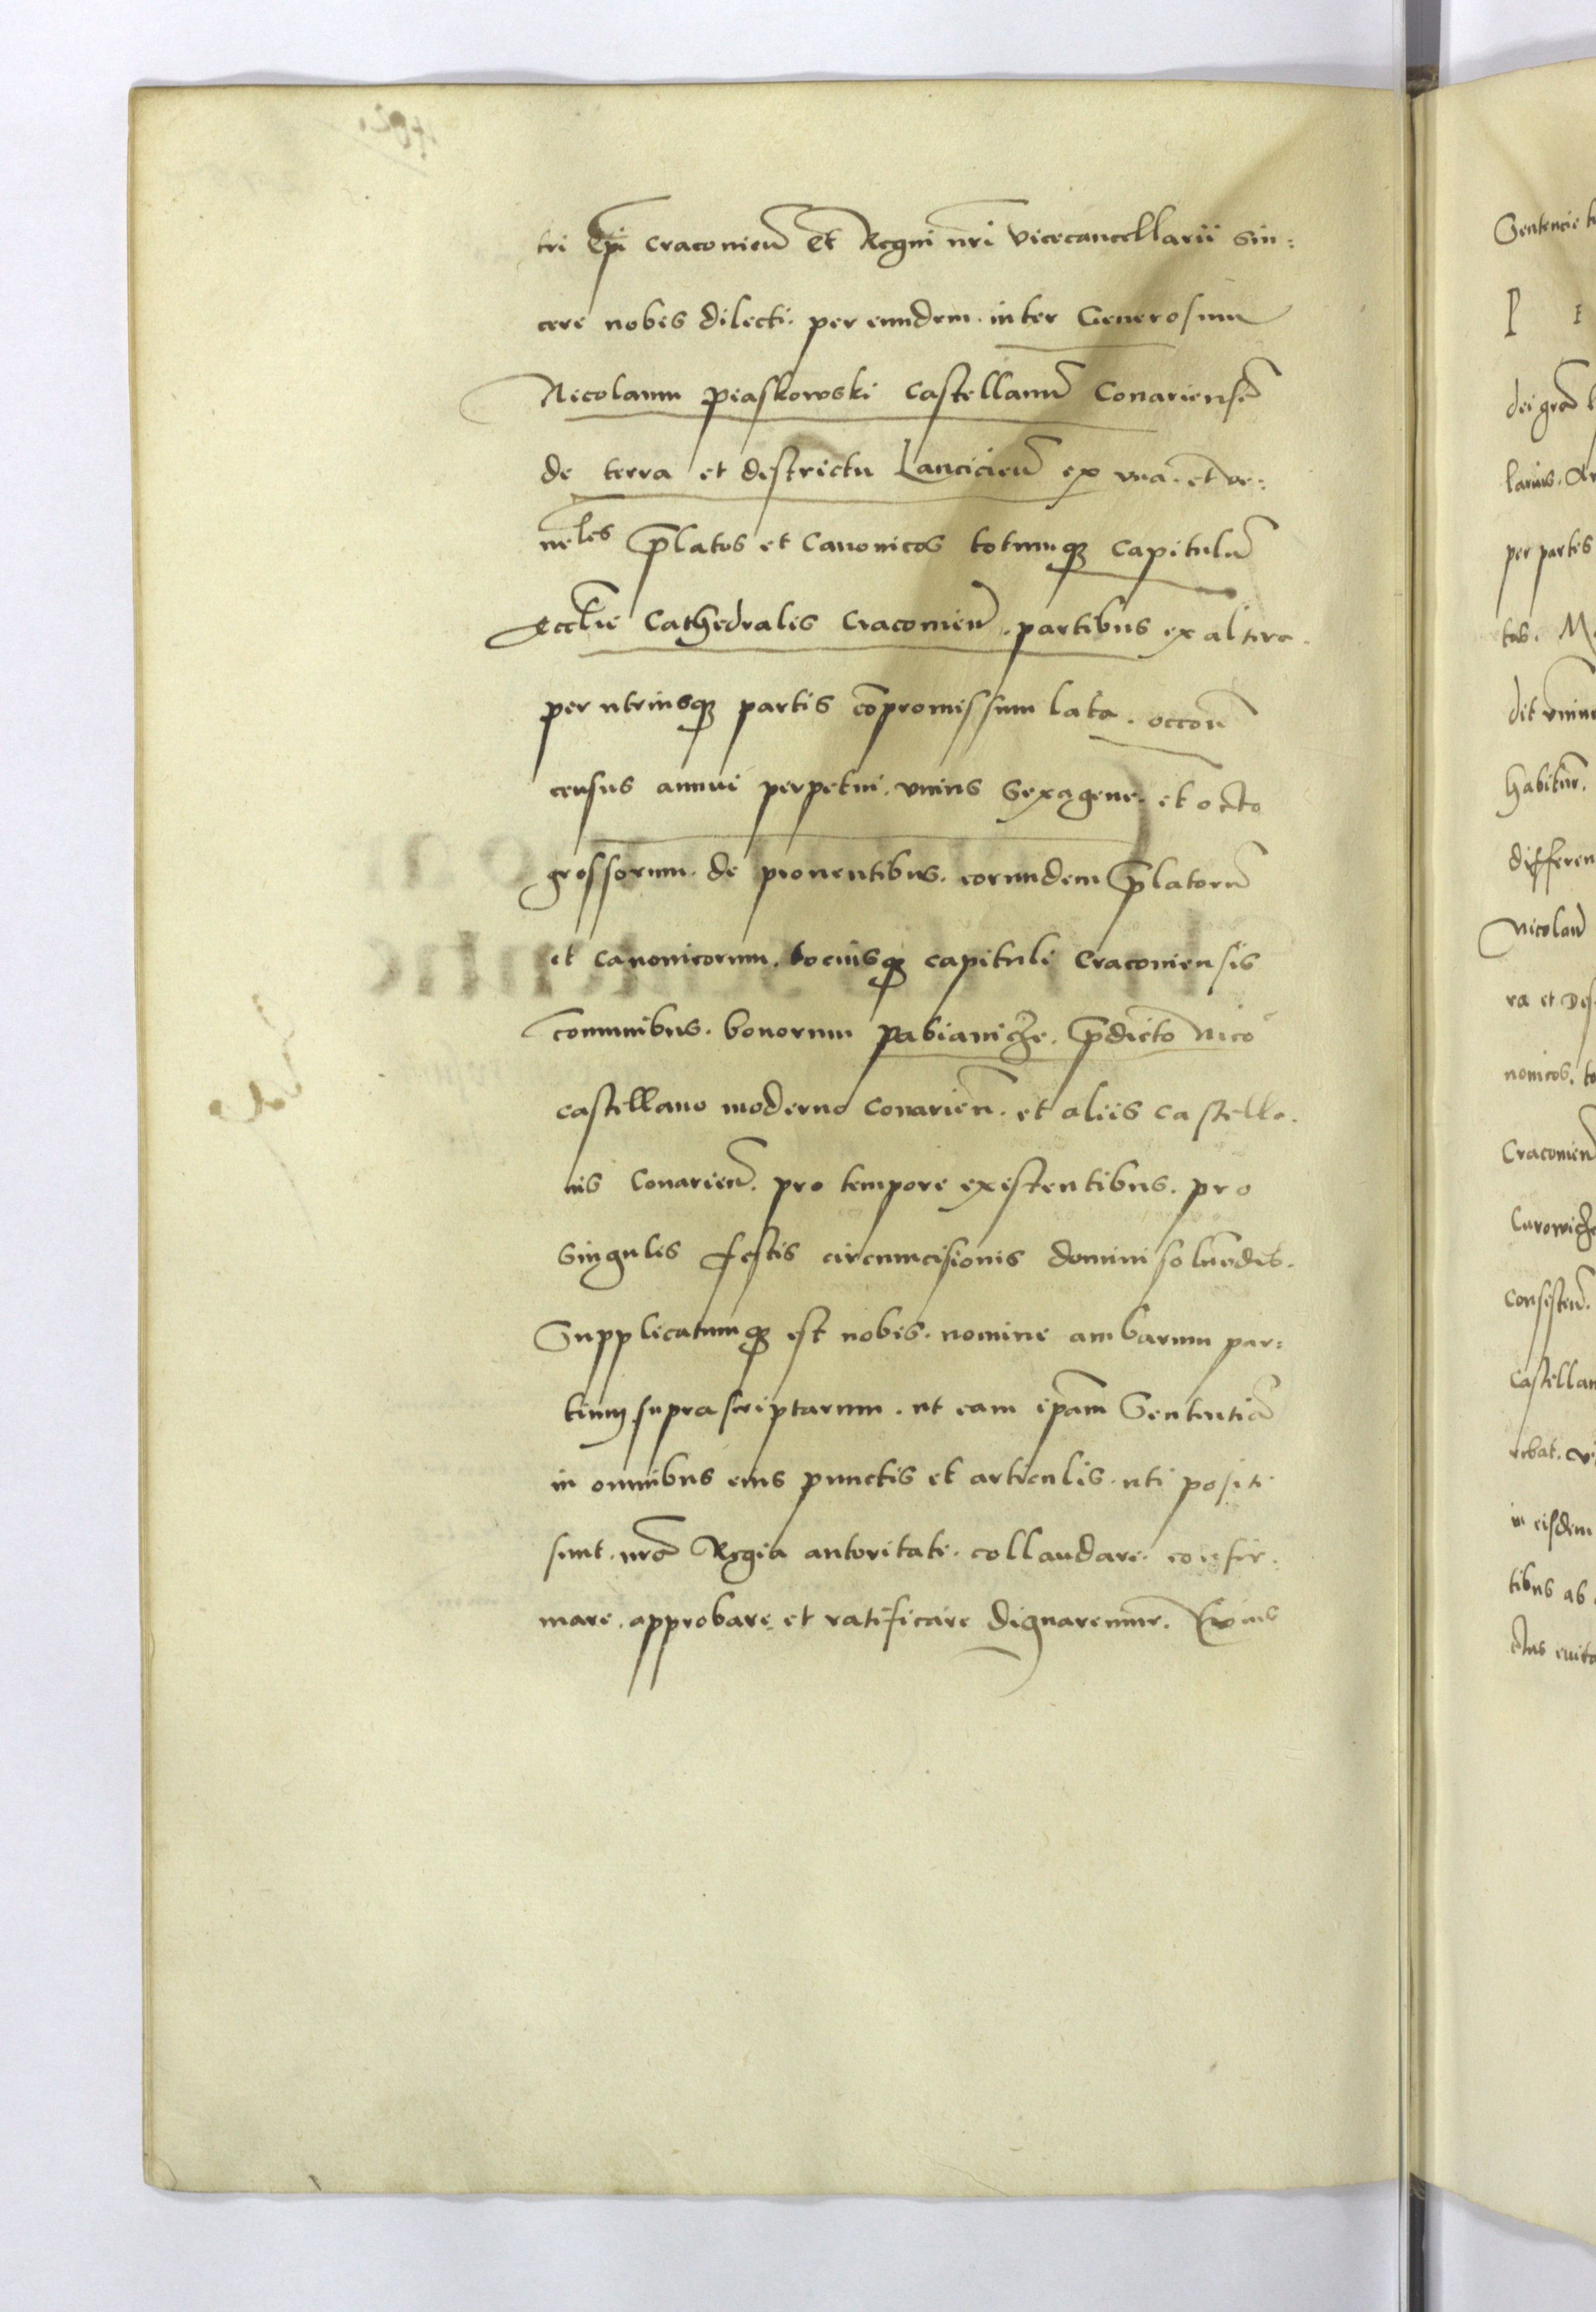 tri Epi Cracovien̄ et Regni nr̄i Vicecancellarii sin:
cere nobis dilecti. per eundem. inter Generosum
Nicolaum Piaskowski Castellanū Conariensē
de terra et districtu Lancicien̄ ex vna. et ve:
nēles p̄latos et Canonicos totumq; Capitulū
Eccl̄ie Cathedralis Cracovien̄. partibus ex altera.
per utriusq; partis cōpromissum lata. occōn̄
census annui perpetui. vnius Sexagene. et octo
grossorum. de proventibus. eorundem p̄latorū
et Canonicorum. tociusq; capituli Cracoviensis
cōmunibus. bonorum Pabianicze. p̄dicto Nico
castellano moderno Conarien̄. et aliis castella.
nis Conarien̄. pro tempore existentibus. pro
singulis festis circumcisionis domini soluēdis.
Supplicatumq; est nobis. nomine ambarum par:
tium suprascriptarum. ut eam ip̄am Sententiā
in omnibus eius punctis et articulis. uti positi
sunt. nr̄a Regia autoritate. collaudare. confir:
mare. approbare. et ratificare dignaremur. Cuius
Sentencie
dei grā
larius.
per partes
tas.
dit
habitur.
differen
Nicolaū
ra et Des
nonicos. to
Cracovien̄
consisten̄.
Castellan
in eisdem
tibus ab